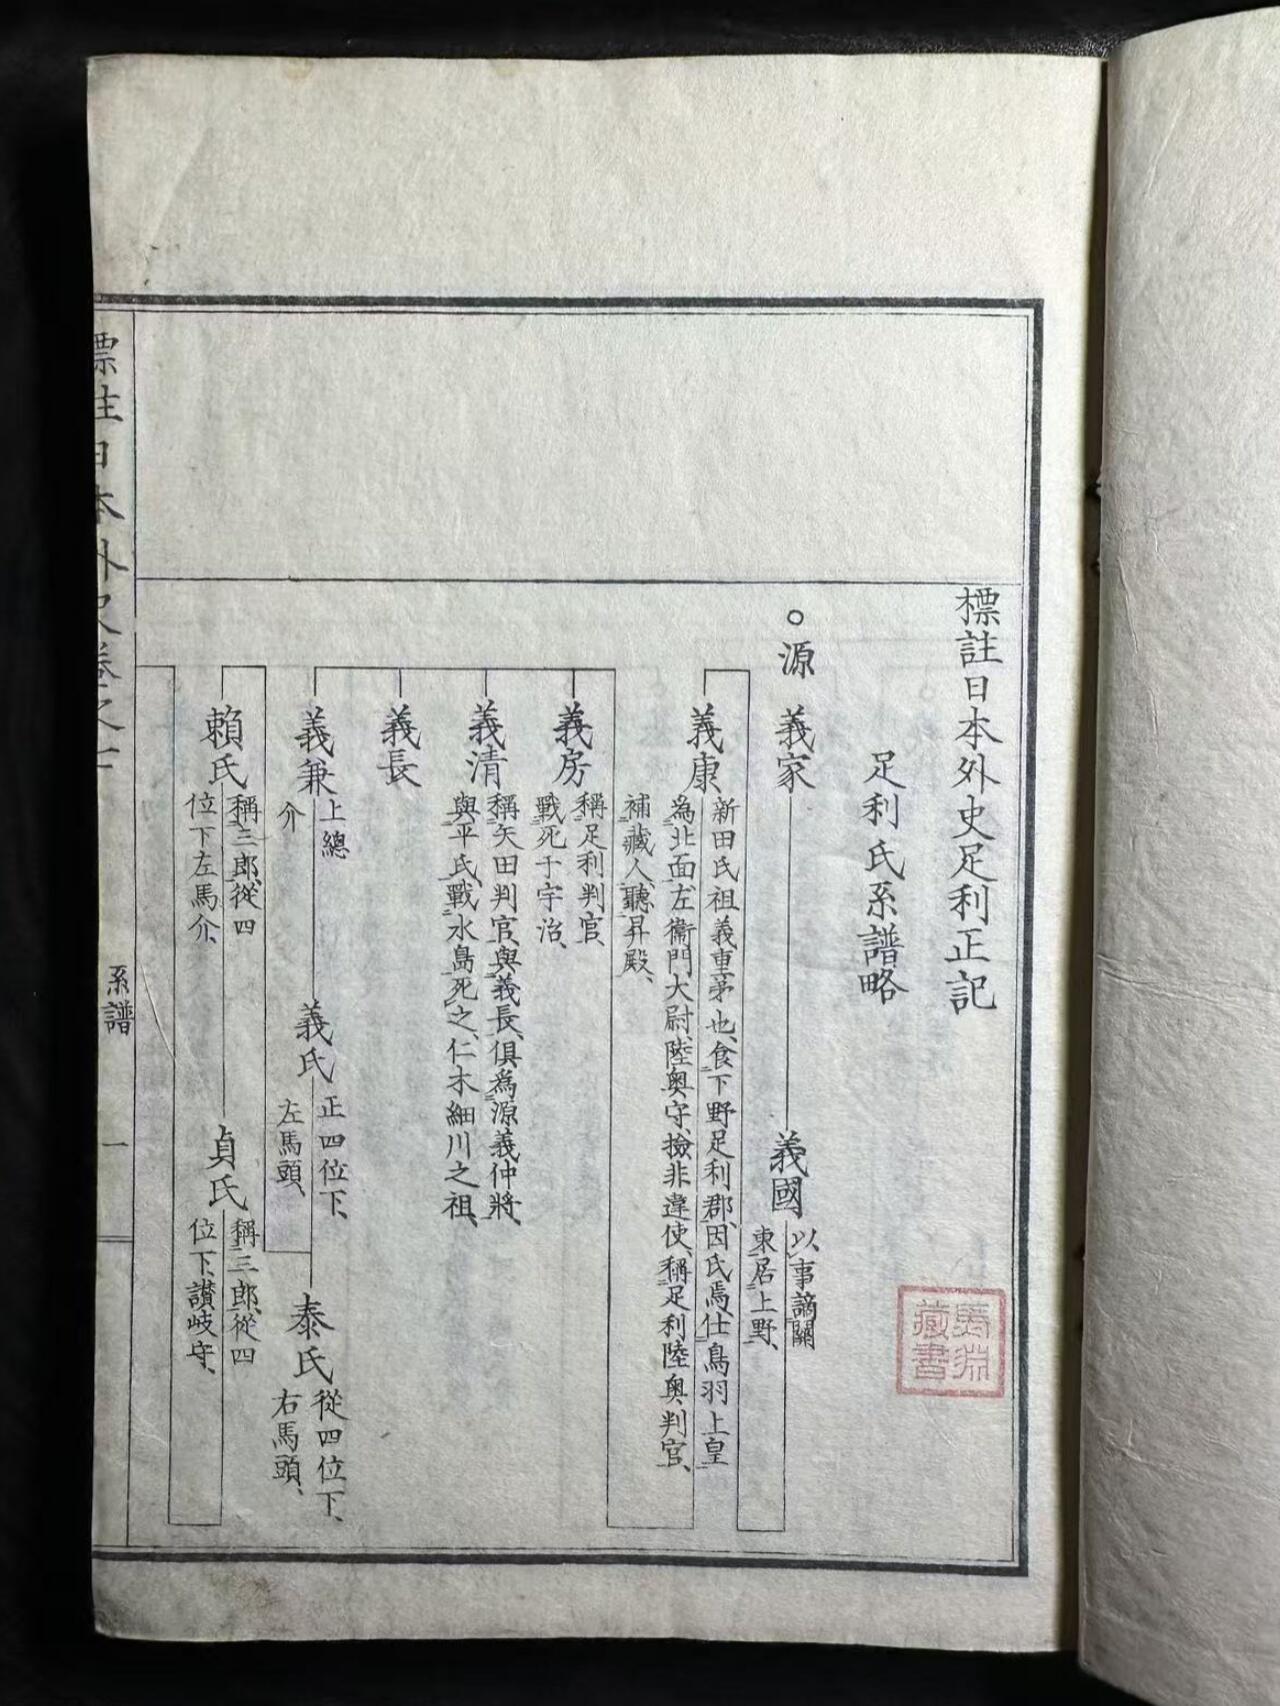 標註日本外史足利正記
足利氏系譜略
源 義家
義國
以事謫關
東居上野、
義康
新田氏祖義重弟也、食下野足利郡、因氏焉、仕鳥羽上皇
為北面左衞門大尉、陸奧守、撿非違使、稱足利陸奧判官、
補藏人、聽昇殿、
義房
稱足利判官、
戰死于宇治、
義清
稱矢田判官、與義長、俱爲源義仲將、
與平氏、戰水島死之、仁木細川之祖、
義長
義兼
上總
介
義氏
正四位下、
左馬頭、
泰氏
從四位下、
右馬頭、
頼氏
稱三郎、從四
位下左馬介、
貞氏
稱三郎、從四
位下、讃岐守、
標註日本外史卷之七
系譜
一
藏書